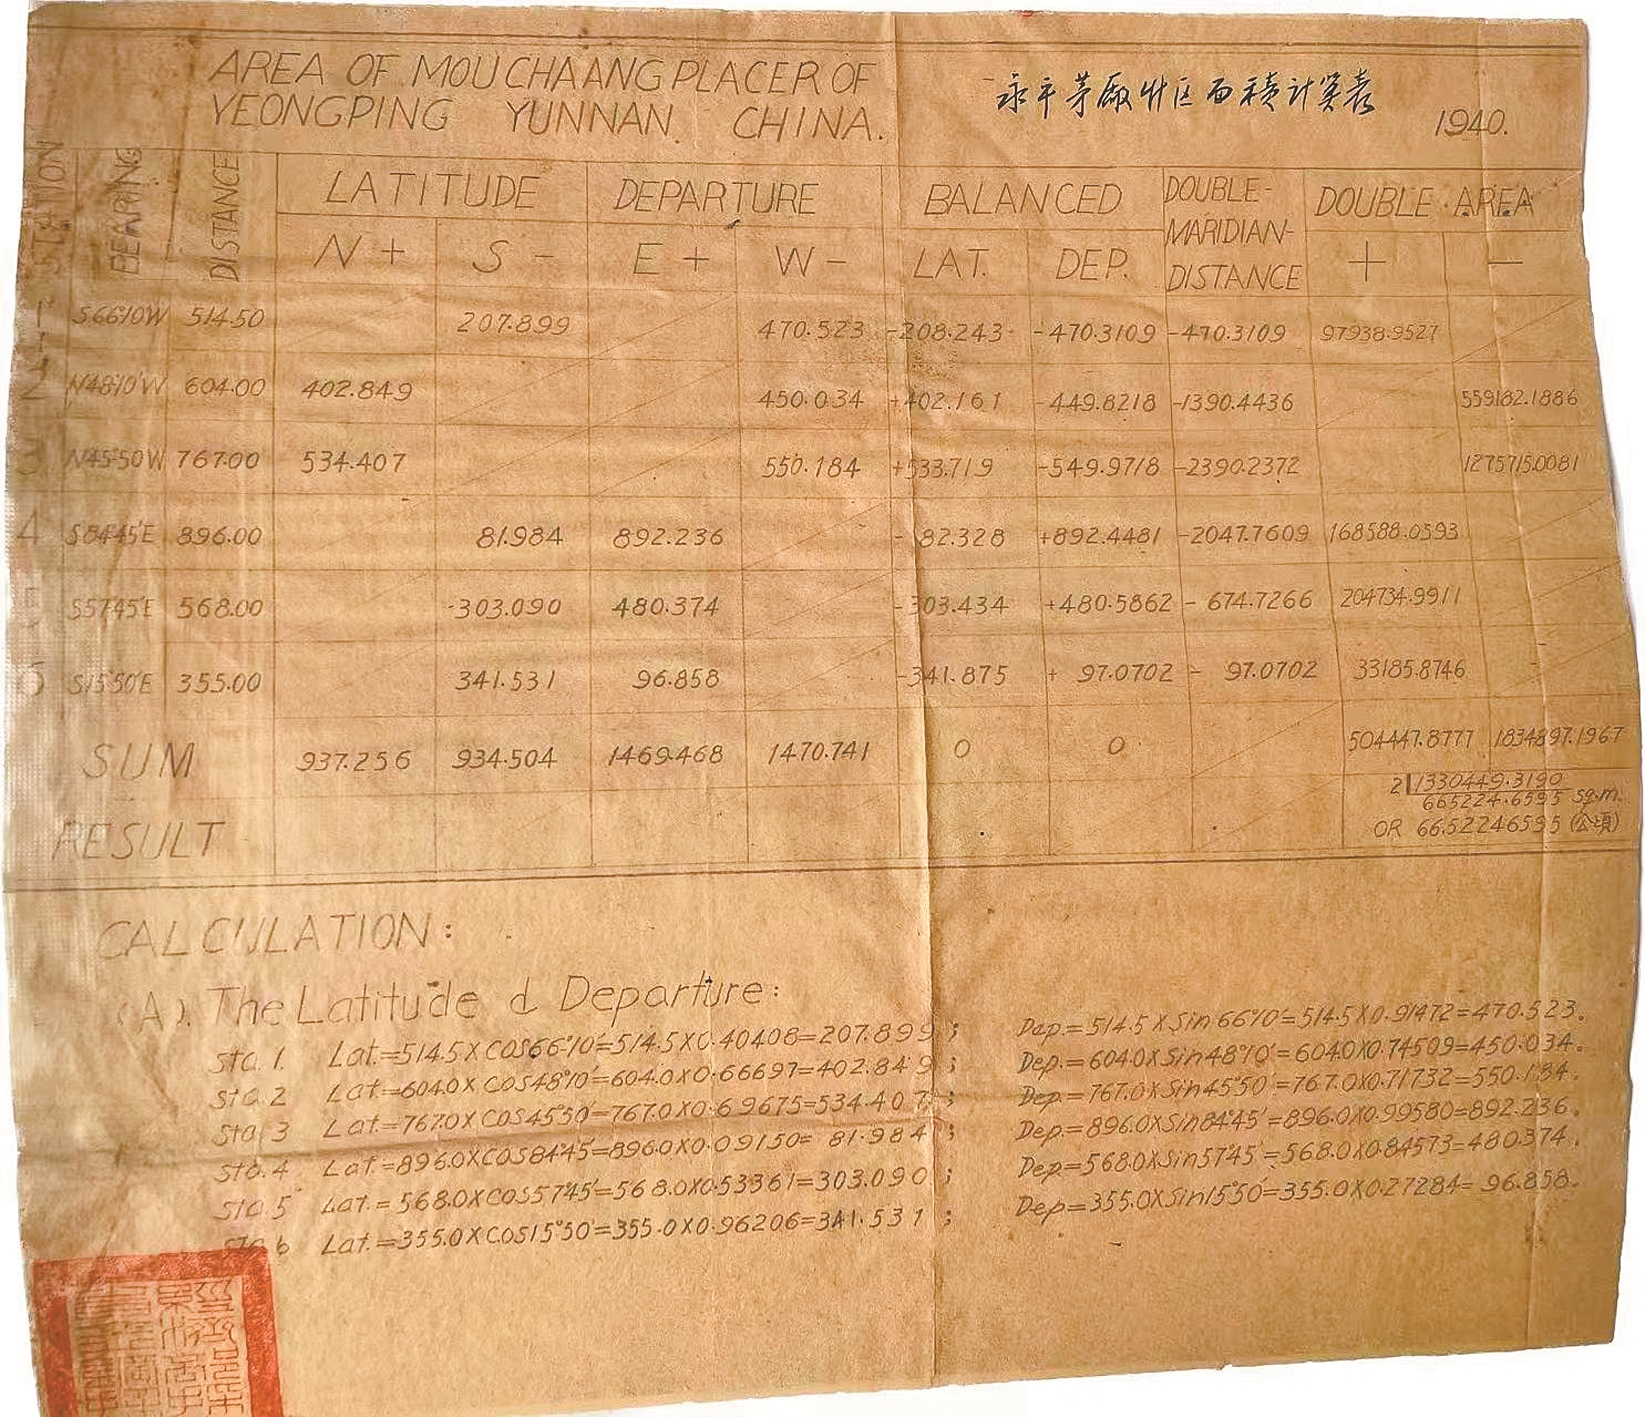 AREA OF MOUCHAANG PLACER OF
YEONGPING YUNNAN. CHINA.
永平茅厰卝区面積計算表
1940.
STATION BEARING DISTANCE LATITUDE DEPARTURE BALANCED DOUBLE-MARIDIAN-DISTANCE DOUBLE AREA
N + S - E + W - LAT. DEP. + -
1 S66°10'W 514.50 207.899 470.523 -208.243 -470.3109 -470.3109 97938.9527
2 N48°10'W 604.00 402.849 450.034 +402.161 -449.8218 -1390.4436 559182.1886
3 N45°50'W 767.00 534.407 550.184 +533.719 -549.9718 -2390.2372 1275715.0081
4 S84°45'E 896.00 81.984 892.236 -82.328 +892.4481 -2047.7609 168588.0593
5 S57°45'E 568.00 -303.090 480.374 -303.434 +480.5862 -674.7266 204734.9911
6 S15°50'E 355.00 341.531 96.858 -341.875 + 97.0702 - 97.0702 33185.8746
SUM 937.256 934.504 1469.468 1470.741 0 0 504447.8777 1834897.1967
2 1330449.3190
665224.6595 sq.m.
RESULT OR 66.52246595 (公頃)
CALCULATION:
(A). The Latitude & Departure:
Sta. 1. Lat.=514.5×COS66°10'=514.5×0.40408=207.899; Dap.=514.5×Sin66°10'=514.5×0.91472=470.523.
Sta. 2 Lat.=604.0×COS48°10'=604.0×0.66697=402.849; Dep.=604.0×Sin48°10'=604.0×0.74509=450.034.
Sta. 3 Lat.=767.0×COS45°50'=767.0×0.69675=534.407; Dep.=767.0×Sin45°50'=767.0×0.71732=550.184.
Sta. 4 Lat.=896.0×COS84°45'=896.0×0.09150= 81.984; Dep.=896.0×Sin84°45'=896.0×0.99580=892.236.
Sta. 5 Lat.=568.0×COS57°45'=568.0×0.53361=303.090; Dep.=568.0×Sin57°45'=568.0×0.84573=480.374.
Sta. 6 Lat.=355.0×COS15°50'=355.0×0.96206=341.531; Dep=355.0×Sin15°50'=355.0×0.27284= 96.858.